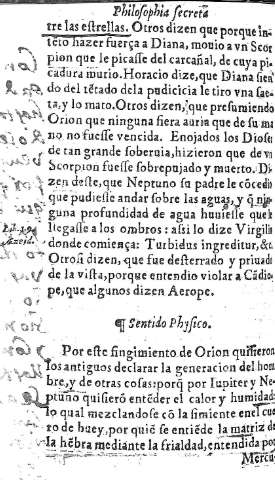 Philosophia secreta
tre las estrellas. Otros dizen que porque in-
tẽto hazer fuerça a Diana, mouio a vn Scor
pion que le picasse del carcañal, de cuya pi-
cadura murio. Horacio dize, que Diana siẽn
do del tẽtado dela pudicicia le tiro vna sae-
ta, y lo mato. Otros dizen, que presumiendo
Orion que ninguna fiera auria que de su ma
no no fuesse vencida. Enojados los Dioses
de tan grande soberuia, hizieron que de vn
Scorpion fuesse sobrepujado y muerto. Di
zen deste, que Neptuno su padre le cõcedio
que pudiesse andar sobre las aguas, y q̃ nin
guna profundidad de agua huuiesse que le
llegasse a los ombros: assi lo dize Virgilio
donde comiença: Turbidus ingreditur, &c.
Otrosi dizen, que fue desterrado y priuado
de la vista, porque entendio violar a Cãdio
pe, que algunos dizen Aerope.
¶ Sentido Physico.
Por este fingimiento de Orion quisieron
los antiguos declarar la generacion del hom
bre, y de otras cosas: porq̃ por Iupiter y Ne-
ptuno quisierõ entẽder el calor y humidad:
lo qual mezclandose cõ la simiente enel cue
ro de buey, por quiẽ se entiẽde la matriz de
la hẽbra mediante la frialdad, entendida por
Mercu-